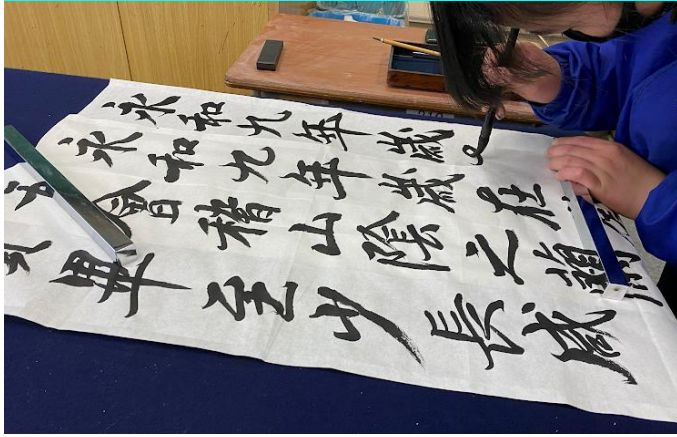 永和九年歳
永和九年歳在
會稽山陰之蘭
畢至少長咸